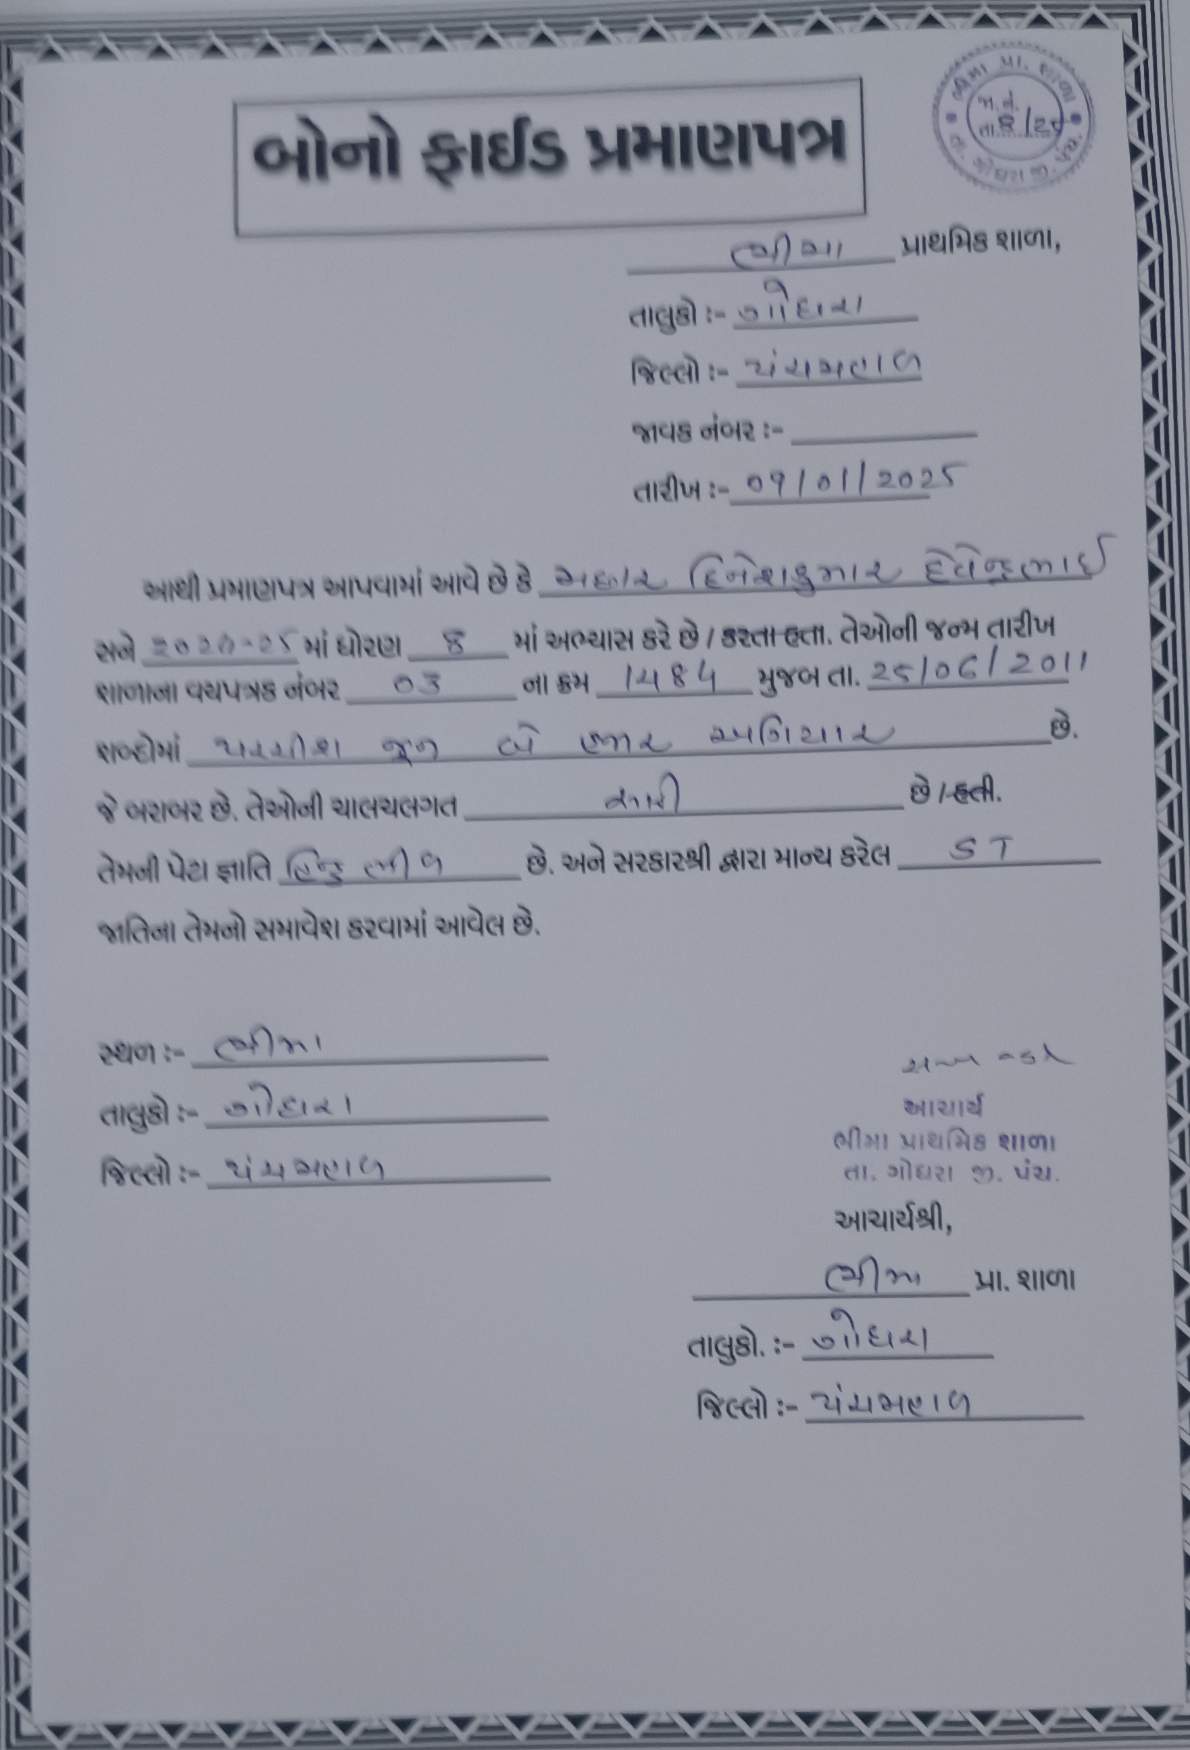 બોનો ફાઈડ પ્રમાણપત્ર
ભીમા પ્રા. શાળા
જા.નં.
તા. 8/25
તા. ગોધરા જી. પંચ.
ભીમા પ્રાથમિક શાળા,
તાલુકો :- ગોધરા
જિલ્લો :- પંચમહાલ
જાવક નંબર :-
તારીખ :- 09/01/2025
આથી પ્રમાણપત્ર આપવામાં આવે છે કે દિનેશકુમાર દેવેન્દ્રભાઈ
સને 2024-25 માં ધોરણ 8 માં અભ્યાસ કરે છે / કરતા હતા. તેઓની જન્મ તારીખ
શાળાના વયપત્રક નંબર 03 ના ક્રમ 1484 મુજબ તા. 25/06/2011
શબ્દોમાં પચ્ચીશ જૂન બે હજાર અગિયાર છે.
જે બરાબર છે. તેઓની ચાલચલગત સારી છે / હતી.
તેમની પેટા જ્ઞાતિ હિન્દુ ભીલ છે. અને સરકારશ્રી દ્વારા માન્ય કરેલ ST
જાતિના તેમનો સમાવેશ કરવામાં આવેલ છે.
સ્થળ :- ભીમા
તાલુકો :- ગોધરા
જિલ્લો :- પંચમહાલ
આચાર્ય
ભીમા પ્રાથમિક શાળા
તા. ગોધરા જી. પંચ.
આચાર્યશ્રી,
ભીમા પ્રા. શાળા
તાલુકો. :- ગોધરા
જિલ્લો :- પંચમહાલ